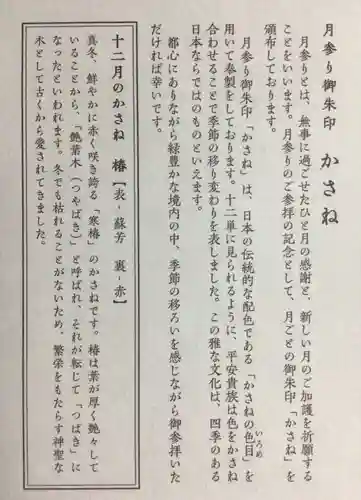 月参り御朱印 かさね
月参りとは、無事に過ごせたひと月の感謝と、新しい月のご加護を祈願する
ことをいいます。月参りのご参拝の記念として、月ごとの御朱印「かさね」を
頒布しております。
月参り御朱印「かさね」は、日本の伝統的な配色である「かさねの色目」を
いろめ
用いて奉製をしております。十二単に見られるように、平安貴族は色をかさね
合わせることで季節の移り変わりを表しました。この雅な文化は、四季のある
日本ならではのものといえます。
都心にありながら緑豊かな境内の中、季節の移ろいを感じながら御参拝いた
だければ幸いです。
十二月のかさね 椿【表-蘇芳 裏-赤】
真冬、鮮やかに赤く咲き誇る「寒椿」のかさねです。椿は葉が厚く艶々して
いることから、「艶葉木（つやばき）」と呼ばれ、それが転じて「つばき」に
なったといわれます。冬でも枯れることがないため、繁栄をもたらす神聖な
木として古くから愛されてきました。